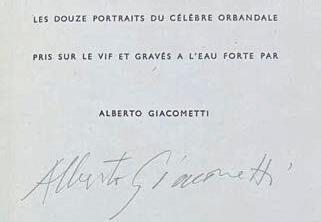 LES DOUZE PORTRAITS DU CÉLÈBRE ORBANDALE
PRIS SUR LE VIF ET GRAVÉS A L'EAU FORTE PAR
ALBERTO GIACOMETTI
Alberto Giacometti